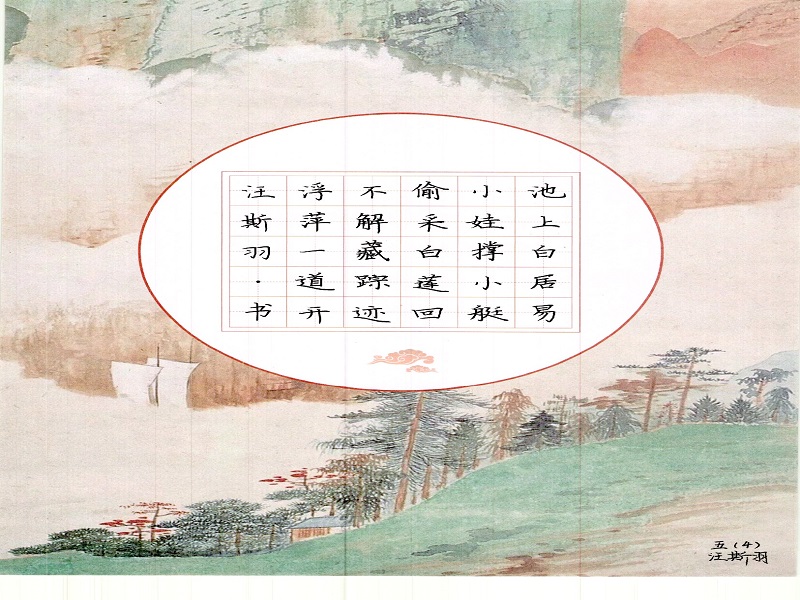 池上白居易
小娃撑小艇
偷采白莲回
不解藏踪迹
浮萍一道开
汪斯羽·书
五(4)
汪斯羽